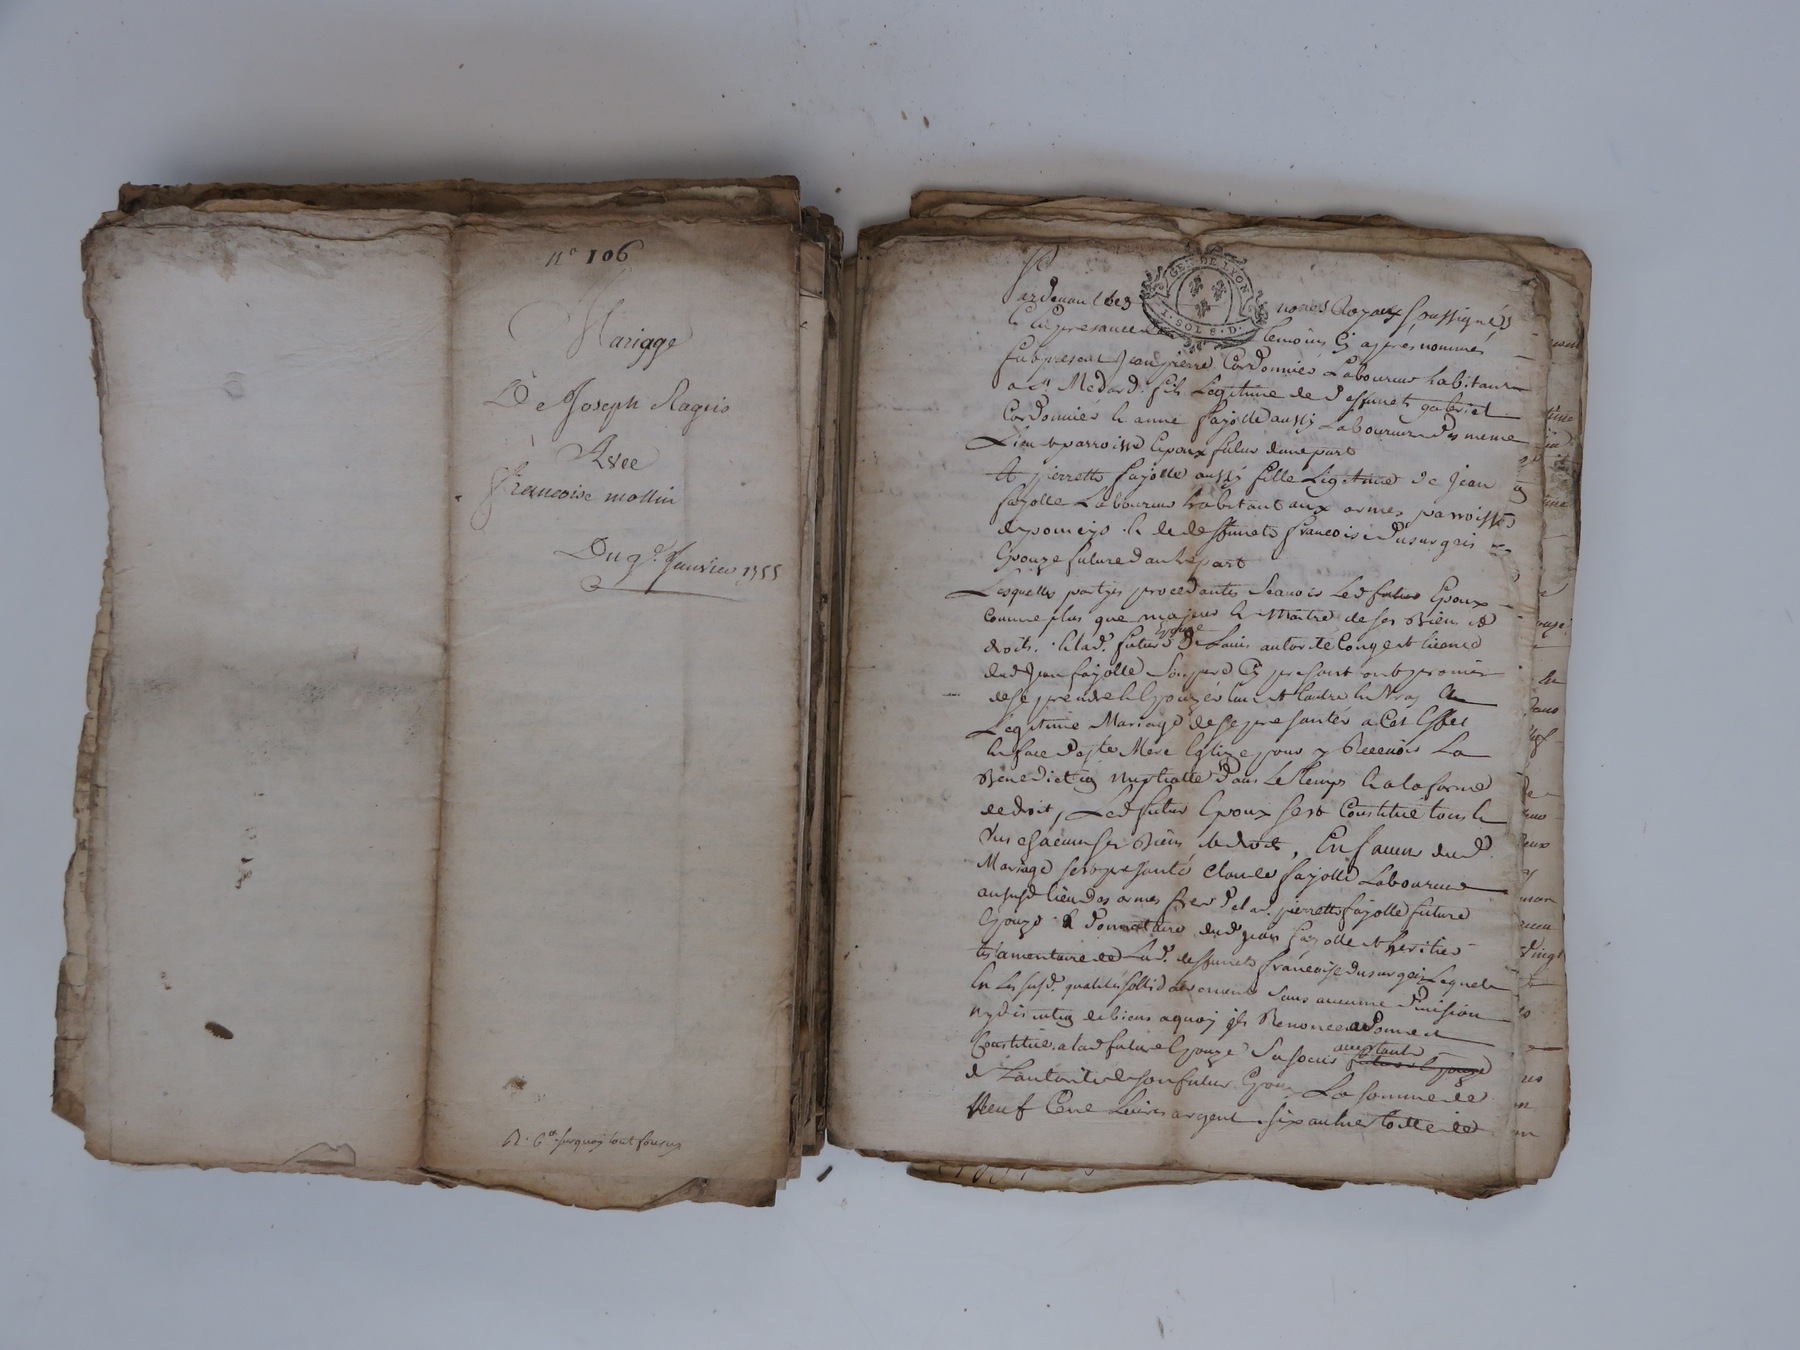 n° 106
Mariage
De Joseph Ragiis
Avec
Françoise mollin
Du 9e. Janvier 1755
R. 6tt. surquoy tout fourny
GEN. DE LYON
1. SOL 8. D.
Pardevant les nores Royaux soussignés
Et En presance des temoins Cy apres nommés
fut present Jean pierre Cordonnier Laboureur habitant
a st. Medard fils Legitime de deffunct gabriel
Cordonnier & anne fayolle aussy Laboureur du meme
Lieu & parroisse Epoux futur dune part
Et pierrette fayolle aussy fille Ligitime de Jean
fayolle Laboureur habitant aux ormes parroisse
de pomeys & de deffuncte francoise Dusurgeis
Epouze future dautre part
Lesquelles partyes procedantes Scauoir Led futur Epoux
comme plus que majeur & Maitre de ses Biens &
droits. & lad. future Epouze De Lauis autorité Conge & licence
dud Jean fayolle Son pere Cy present ont promis
de se prendre & Epouzer lun & lautre En Vray &
Legitime Mariage de se presanter a Cet Effet
En face de ste Mere Eglize pour y Receuoir La
Benediction Nuptialle Dans Le Temps & a la forme
de droit, Led futur Epoux sest Constitué tous &
Uns chacuns ses Biens & droits, En faueur dud.
Mariage sest presanté Claude fayolle Laboureur
au susd lieu des ormes frere de lad. pierrette fayolle future
Epouze & Donnataire dud jean fayolle & heritier
testamentaire de Lad. deffuncte françoise Dusurgeis Lequel
En Les susd. qualités solidairement Sans aucunne Diuision
ny discution de biens a quoy ils Renonce a Donné &
Constitué a lad future Epouze Sa soeur acceptante future Epouze
de Lautorité de son futur Epoux La somme de
Neuf Cent Liures argent six aulnes toille de